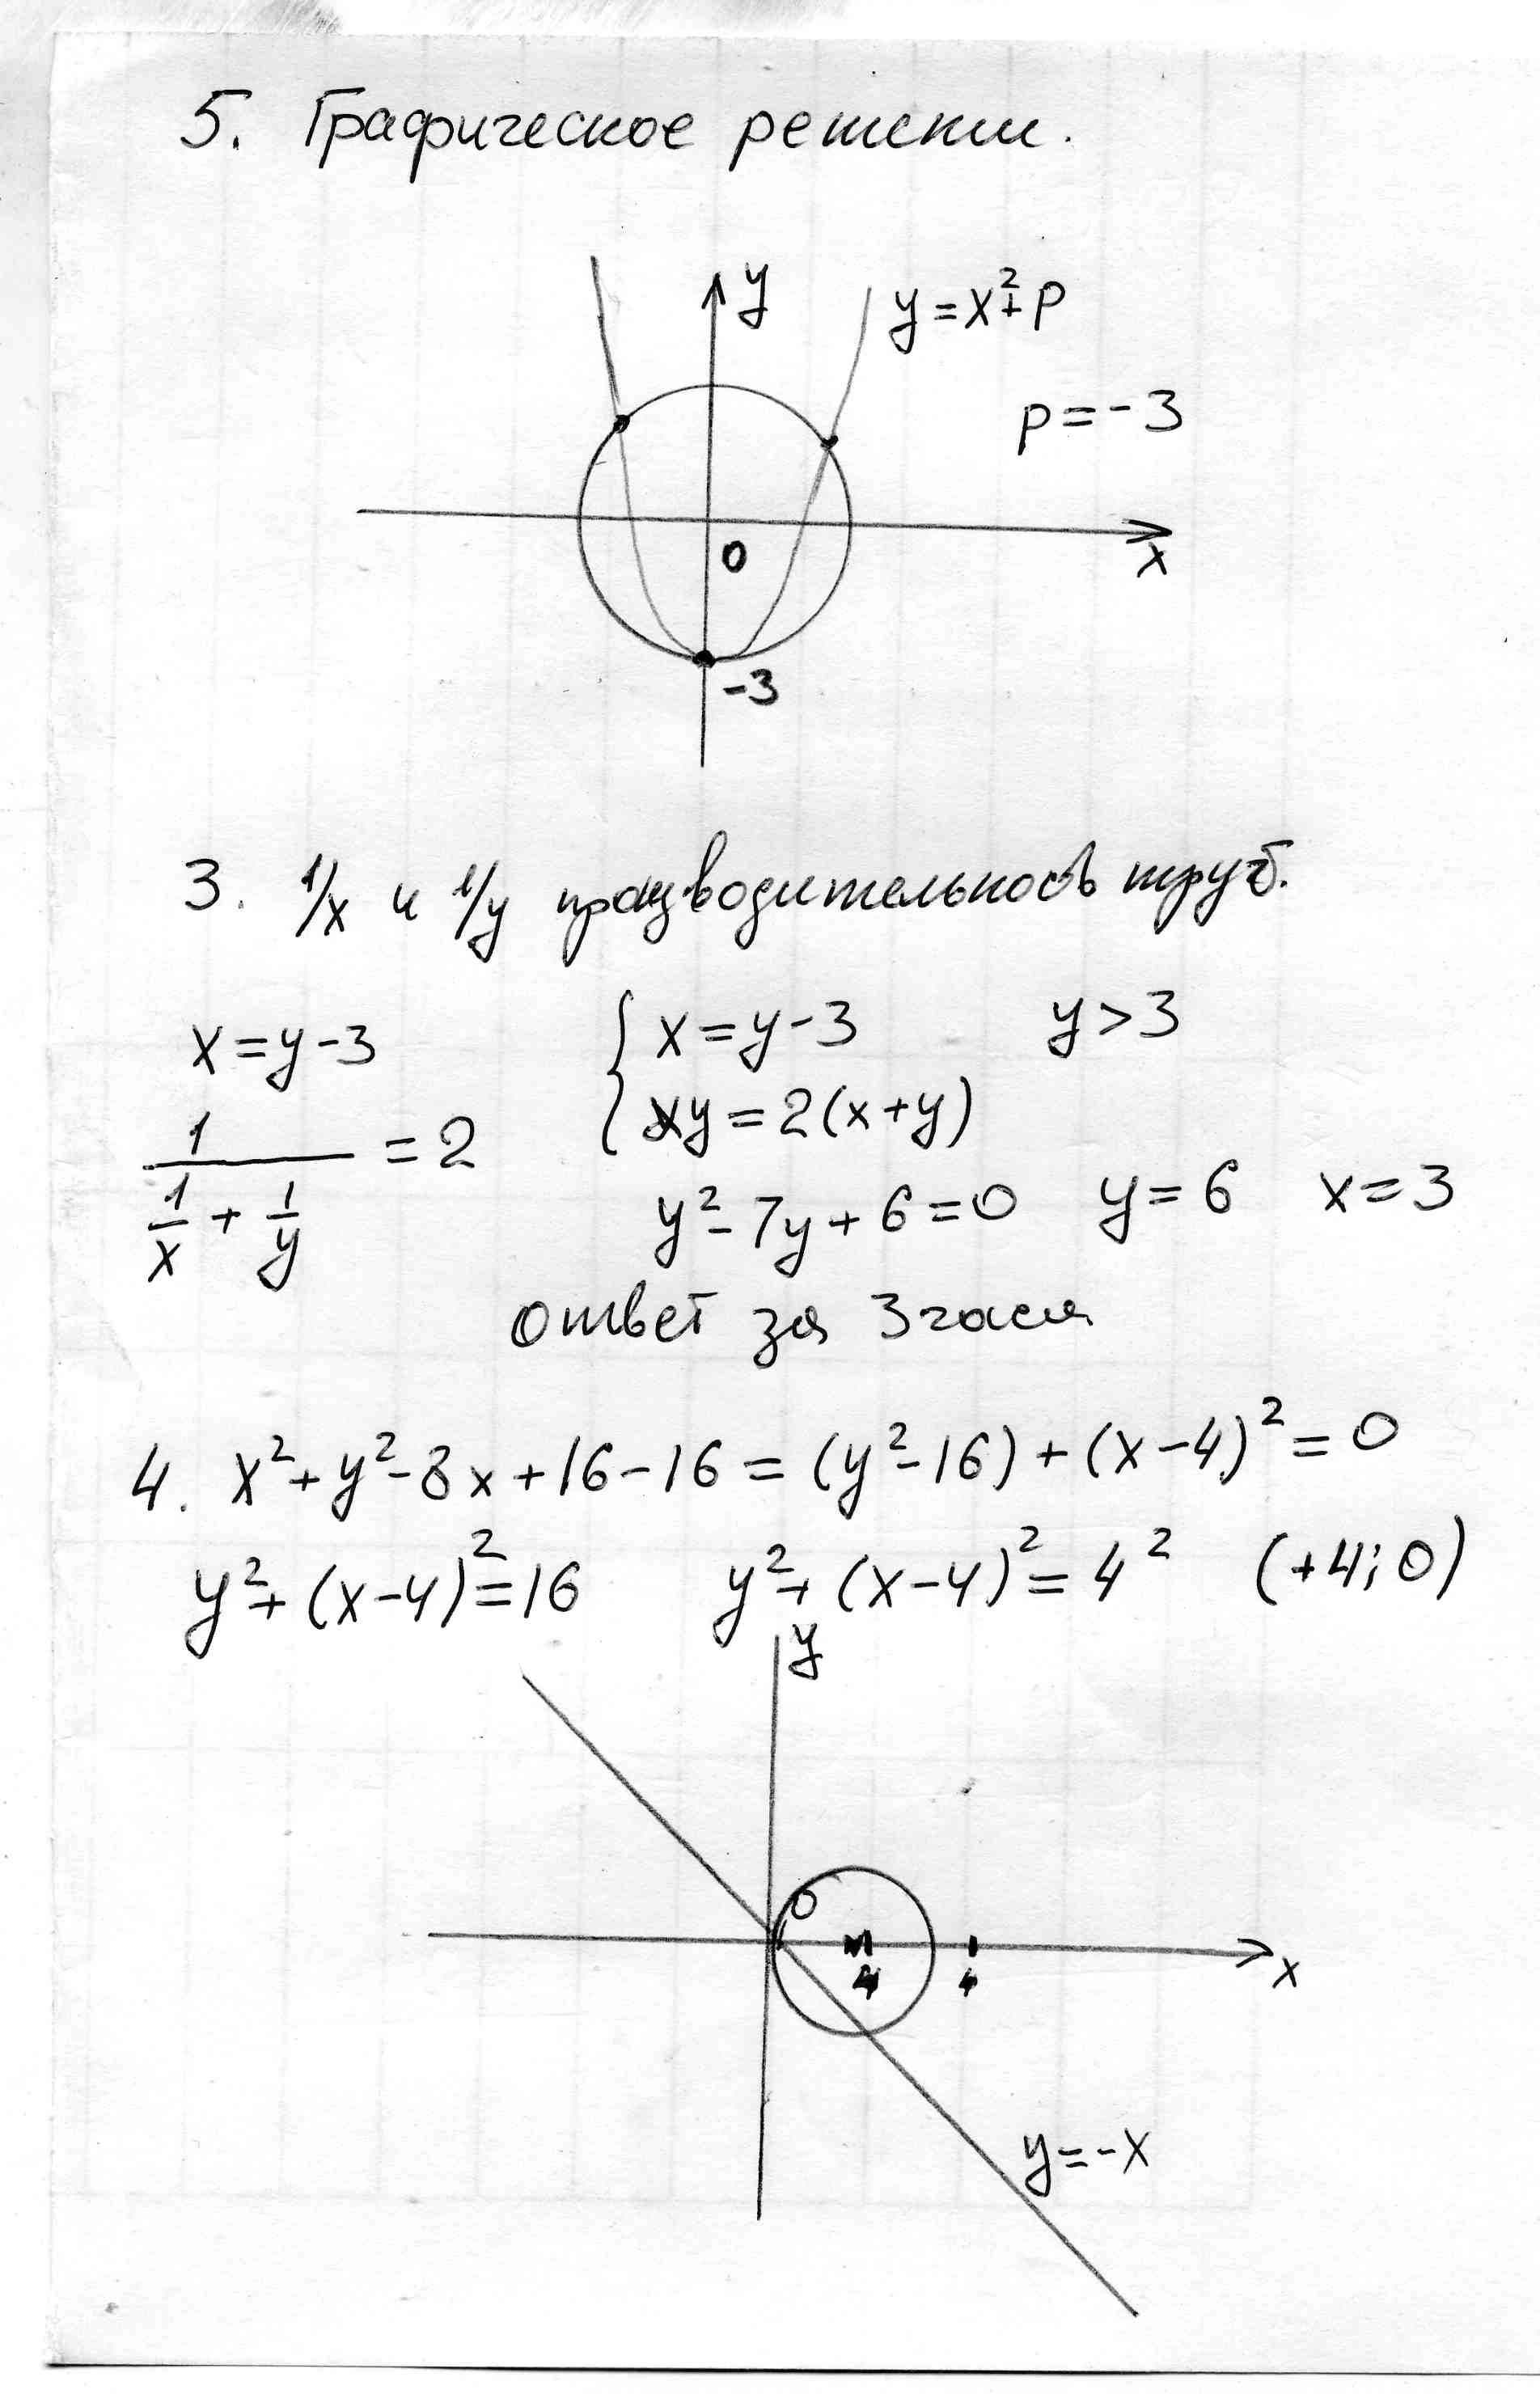 5. Графическое решение.
y
y=x²+p
p=-3
0
x
-3
3. 1/x и 1/y производительность труб.
x=y-3
{ x=y-3 y>3
1/(1/x + 1/y) = 2
xy=2(x+y)
y²-7y+6=0 y=6 x=3
ответ за 3 часа
4. x²+y²-8x+16-16=(y²-16)+(x-4)²=0
y²+(x-4)²=16 y²+(x-4)²=4² (+4;0)
y
0
4
x
y=-x